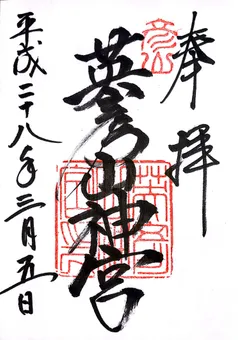 奉拝
英彦山神宮
平成二十八年三月五日